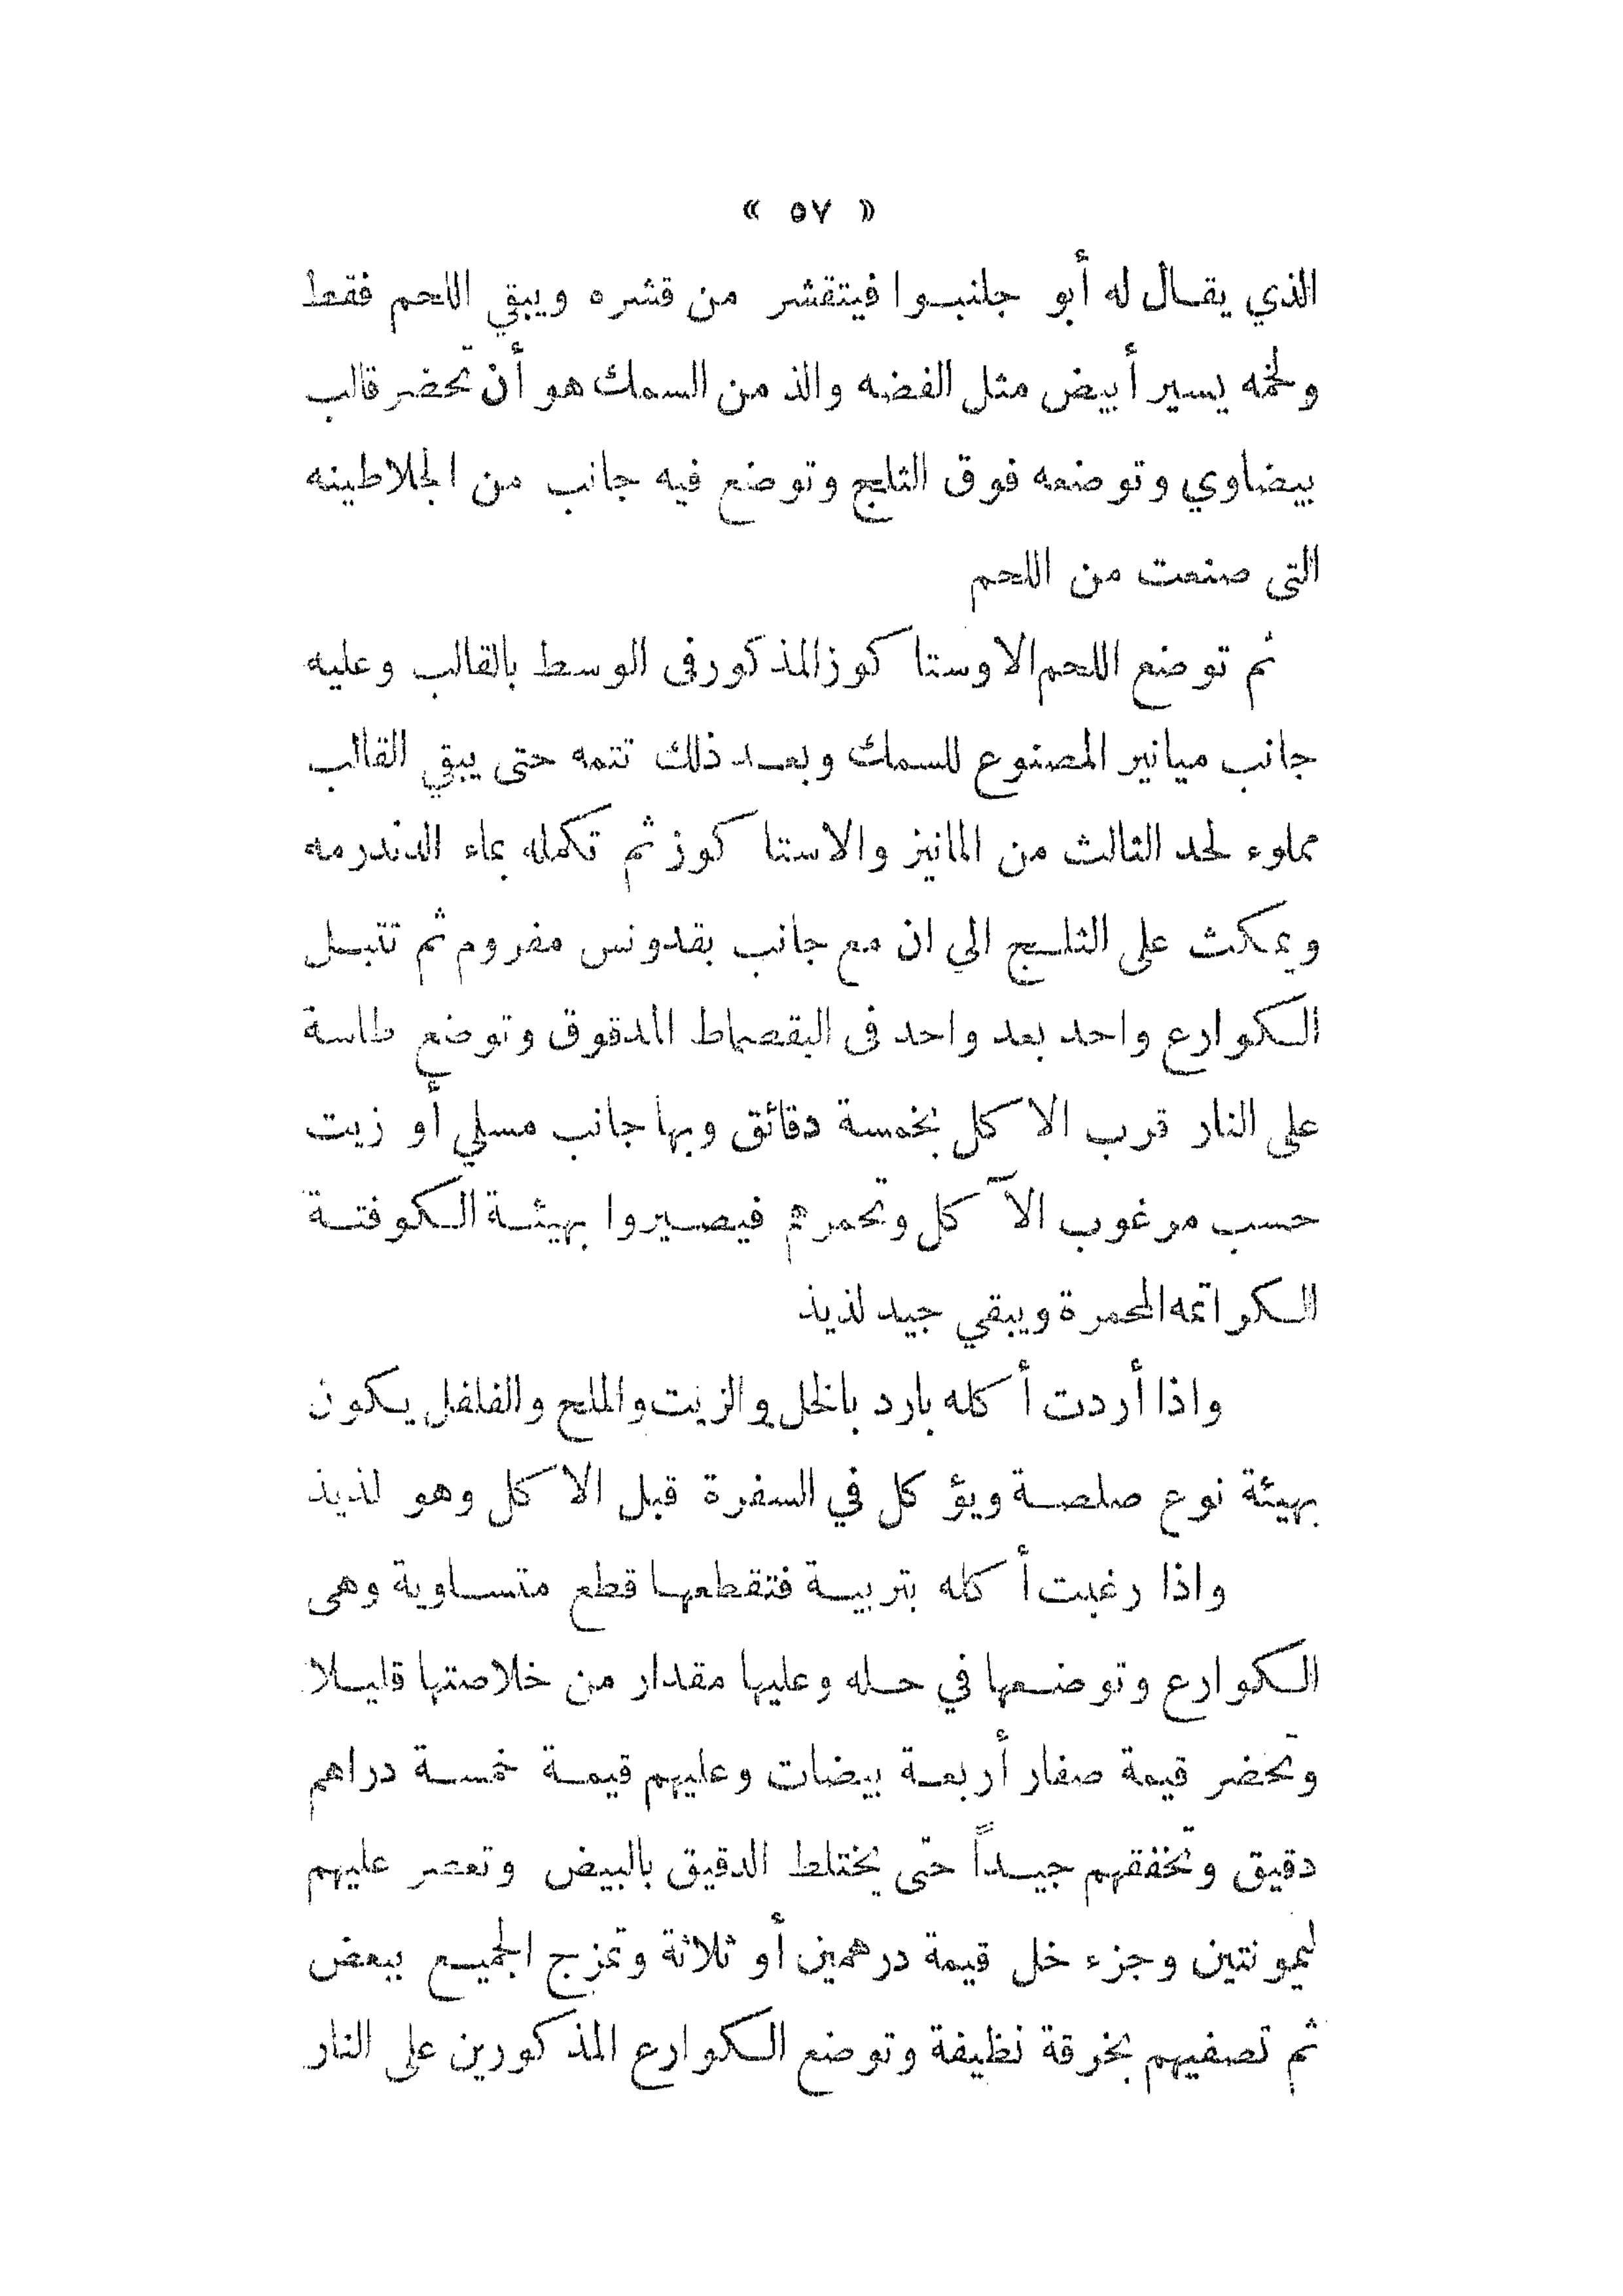 « ٥٧ »
الذي يقال له أبو جلنبوا فيتقشر من قشره ويبقي اللحم فقط
ولحمه يسير أبيض مثل الفضه والذ من السمك هو أن تحضر قالب
بيضاوي وتوضعه فوق الثلج وتوضع فيه جانب من الجلاطينه
التى صنعت من اللحم
ثم توضع اللحم الاوستا كوز المذكور فى الوسط بالقالب وعليه
جانب ميانيز المصنوع للسمك وبعد ذلك تتمه حتى يبقي القالب
مملوء لحد الثالث من المانيز والاستا كوز ثم تكمله بماء الدندرمه
ويمكث على الثلج الي ان مع جانب بقدونس مفروم ثم تتبل
الكوارع واحد بعد واحد فى البقصماط المدقوق وتوضع طاسة
على النار قرب الاكل بخمسة دقائق وبها جانب مسلي أو زيت
حسب مرغوب الآكل وتحمرهم فيصيروا بهيئة الكوفتة
الكراتمه المحمرة ويبقي جيد لذيذ
واذا أردت أكله بارد بالخل والزيت والملح والفلفل يكون
بهيئة نوع صلصة ويؤكل في السفرة قبل الاكل وهو لذيذ
واذا رغبت أكله بتربية فتقطعها قطع متساوية وهى
الكوارع وتوضعها في حله وعليها مقدار من خلاصتها قليلا
وتحضر قيمة صفار أربعة بيضات وعليهم قيمة خمسة دراهم
دقيق وتخفقهم جيداً حتى يختلط الدقيق بالبيض وتعصر عليهم
ليمونتين وجزء خل قيمة درهمين أو ثلاثة وتمزج الجميع ببعض
ثم تصفيهم بخرقة نظيفة وتوضع الكوارع المذكورين على النار